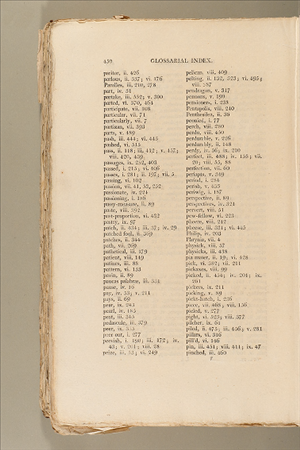 GLOSSARIAL INDEX.
pariter, ii. 426
perilous, ii. 337; vi. 176
part, iv. 31
partake, iii. 552; v. 300
parted, vi. 370, 454
participate, vii. 308
particular, vii. 74
particularly, vii. 7
partizan, vii. 393
parts, v. 189
pash, iii. 444; vi. 445
pashed, vi. 515
pass, ii. 118; iii. 412; v. 437;
viii. 426, 439,
passages, iii. 252, 403
passed, i. 215; v. 406
passes, i. 241; ii. 197; vii. 5
passing, vi. 102
passion, vii. 41, 53, 252
passionate, iv. 224
passioning, i. 186
passy-measure, ii. 89
paste, viii. 592
past-proportion, vi. 457
pastry, ix. 97
patch, ii. 434; iii. 37; iv. 29
patched fool, ii. 309
patches, ii. 344
path, vii. 269
pathetical, iii. 179
patient, viii. 149
patines, iii. 85
pattern, vi. 133
pavin, ii. 89
paucas palabras, iii. 351
pause, iv. 19
pay, iv. 33; v. 214
pays, ii. 69
pear, ix. 285
pearl, iv. 185
peat, iii. 363
pedascule, iii. 379
peer, ix. 335
peer out, i. 277
peevish, i. 190; iii. 172; iv.
42; v. 201; viii. 28
peize, iii. 52; vi. 249
pelican, viii. 409
pelting, ii. 152, 323; vi. 295;
viii. 387
pendragon, v. 317
penance, v. 199
pensioners, i. 238
Pentapolis, viii. 240
Penthesilea, ii. 39
peonied, i. 77
perch, viii. 290
perdu, viii. 450
perdurable, v. 226
perdurably, ii. 148
perdy, iv. 36; ix. 290
perfect, iii. 488; iv. 135; vii.
20; viii. 53, 88
perfection, vii. 60
perhaps, v. 349
period, i. 284
perish, v. 453
periwig, i. 187
perspective, ii. 89
perspectives, iv. 321
pervert, viii. 51
pew-fellow, vi. 225
pheeze, iii. 331; vi. 445
Philip, iv. 203
physical, vii. 37
physicks, iii. 414
pia mater, ii. 19; vi. 426
pick, vi. 397; vii. 211
pickaxes, viii. 99
picked, ii. 434; iv. 201; ix.
picture, ix. 211
picking, v. 89
pight, vi. 523; viii. 377
pilcher, ix. 60
piled, ii. 475; iii. 456; v. 281
pillars, vi. 346
pill'd, vi. 196
pin, iii. 434; viii. 411; ix. 47
pinched, iii. 460